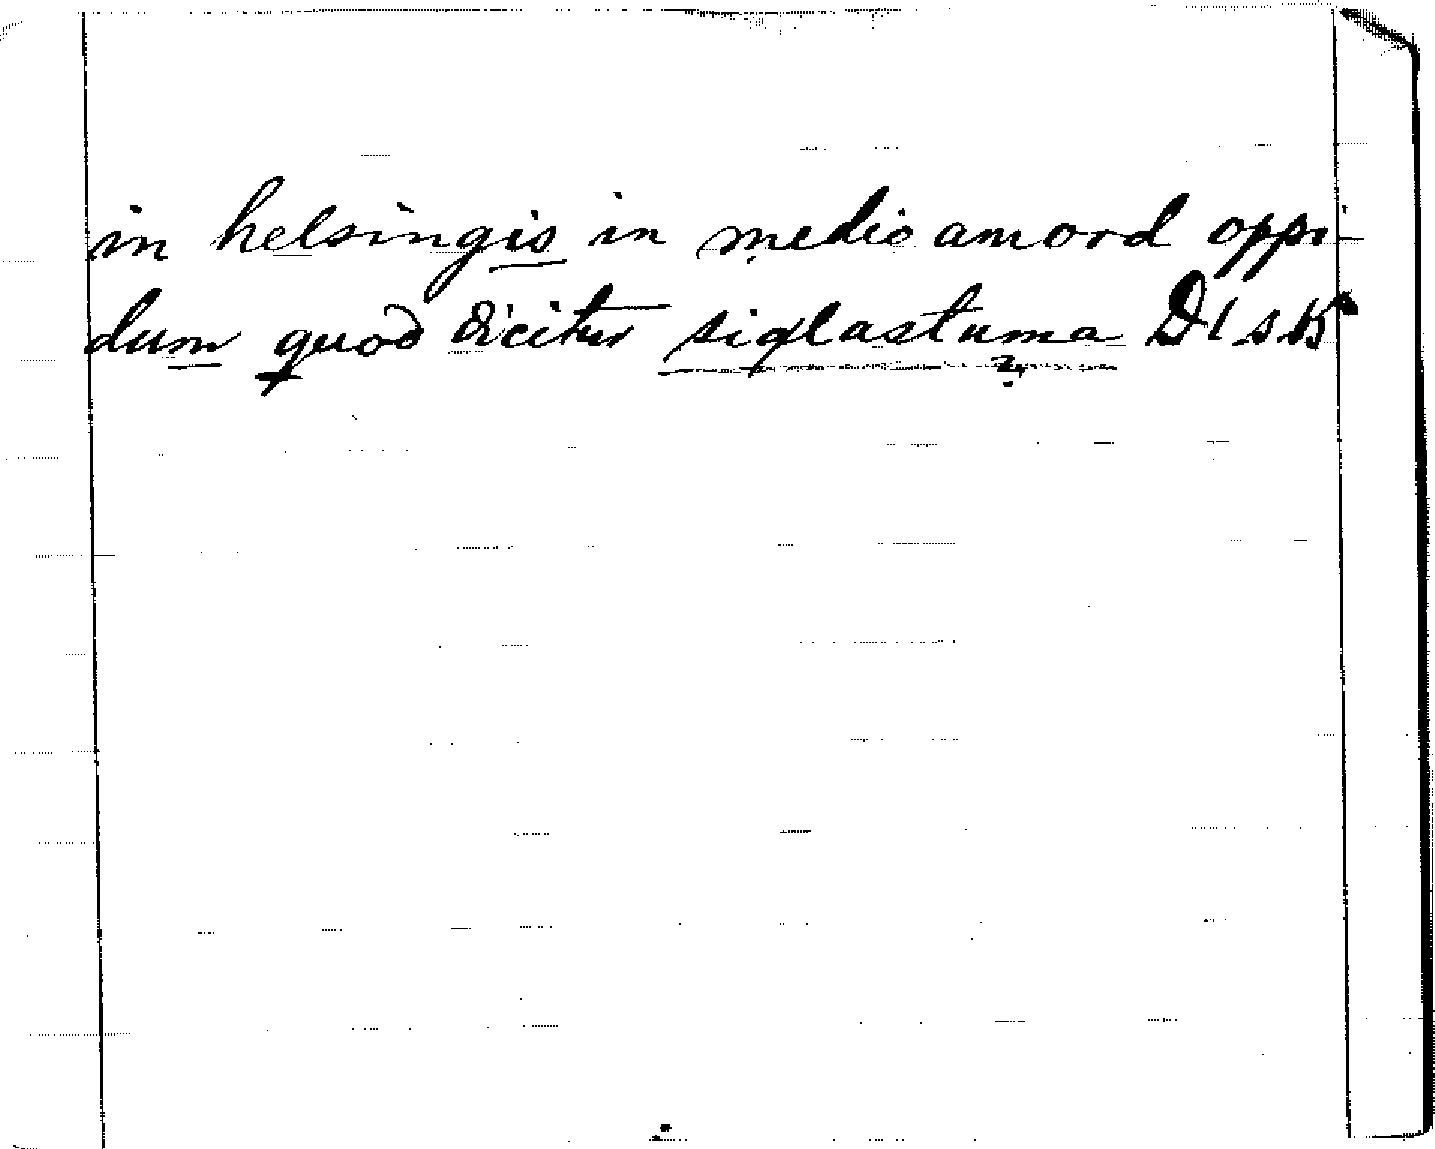 in helsingis in medio amord oppi-
dum quod dicitur siglastuma